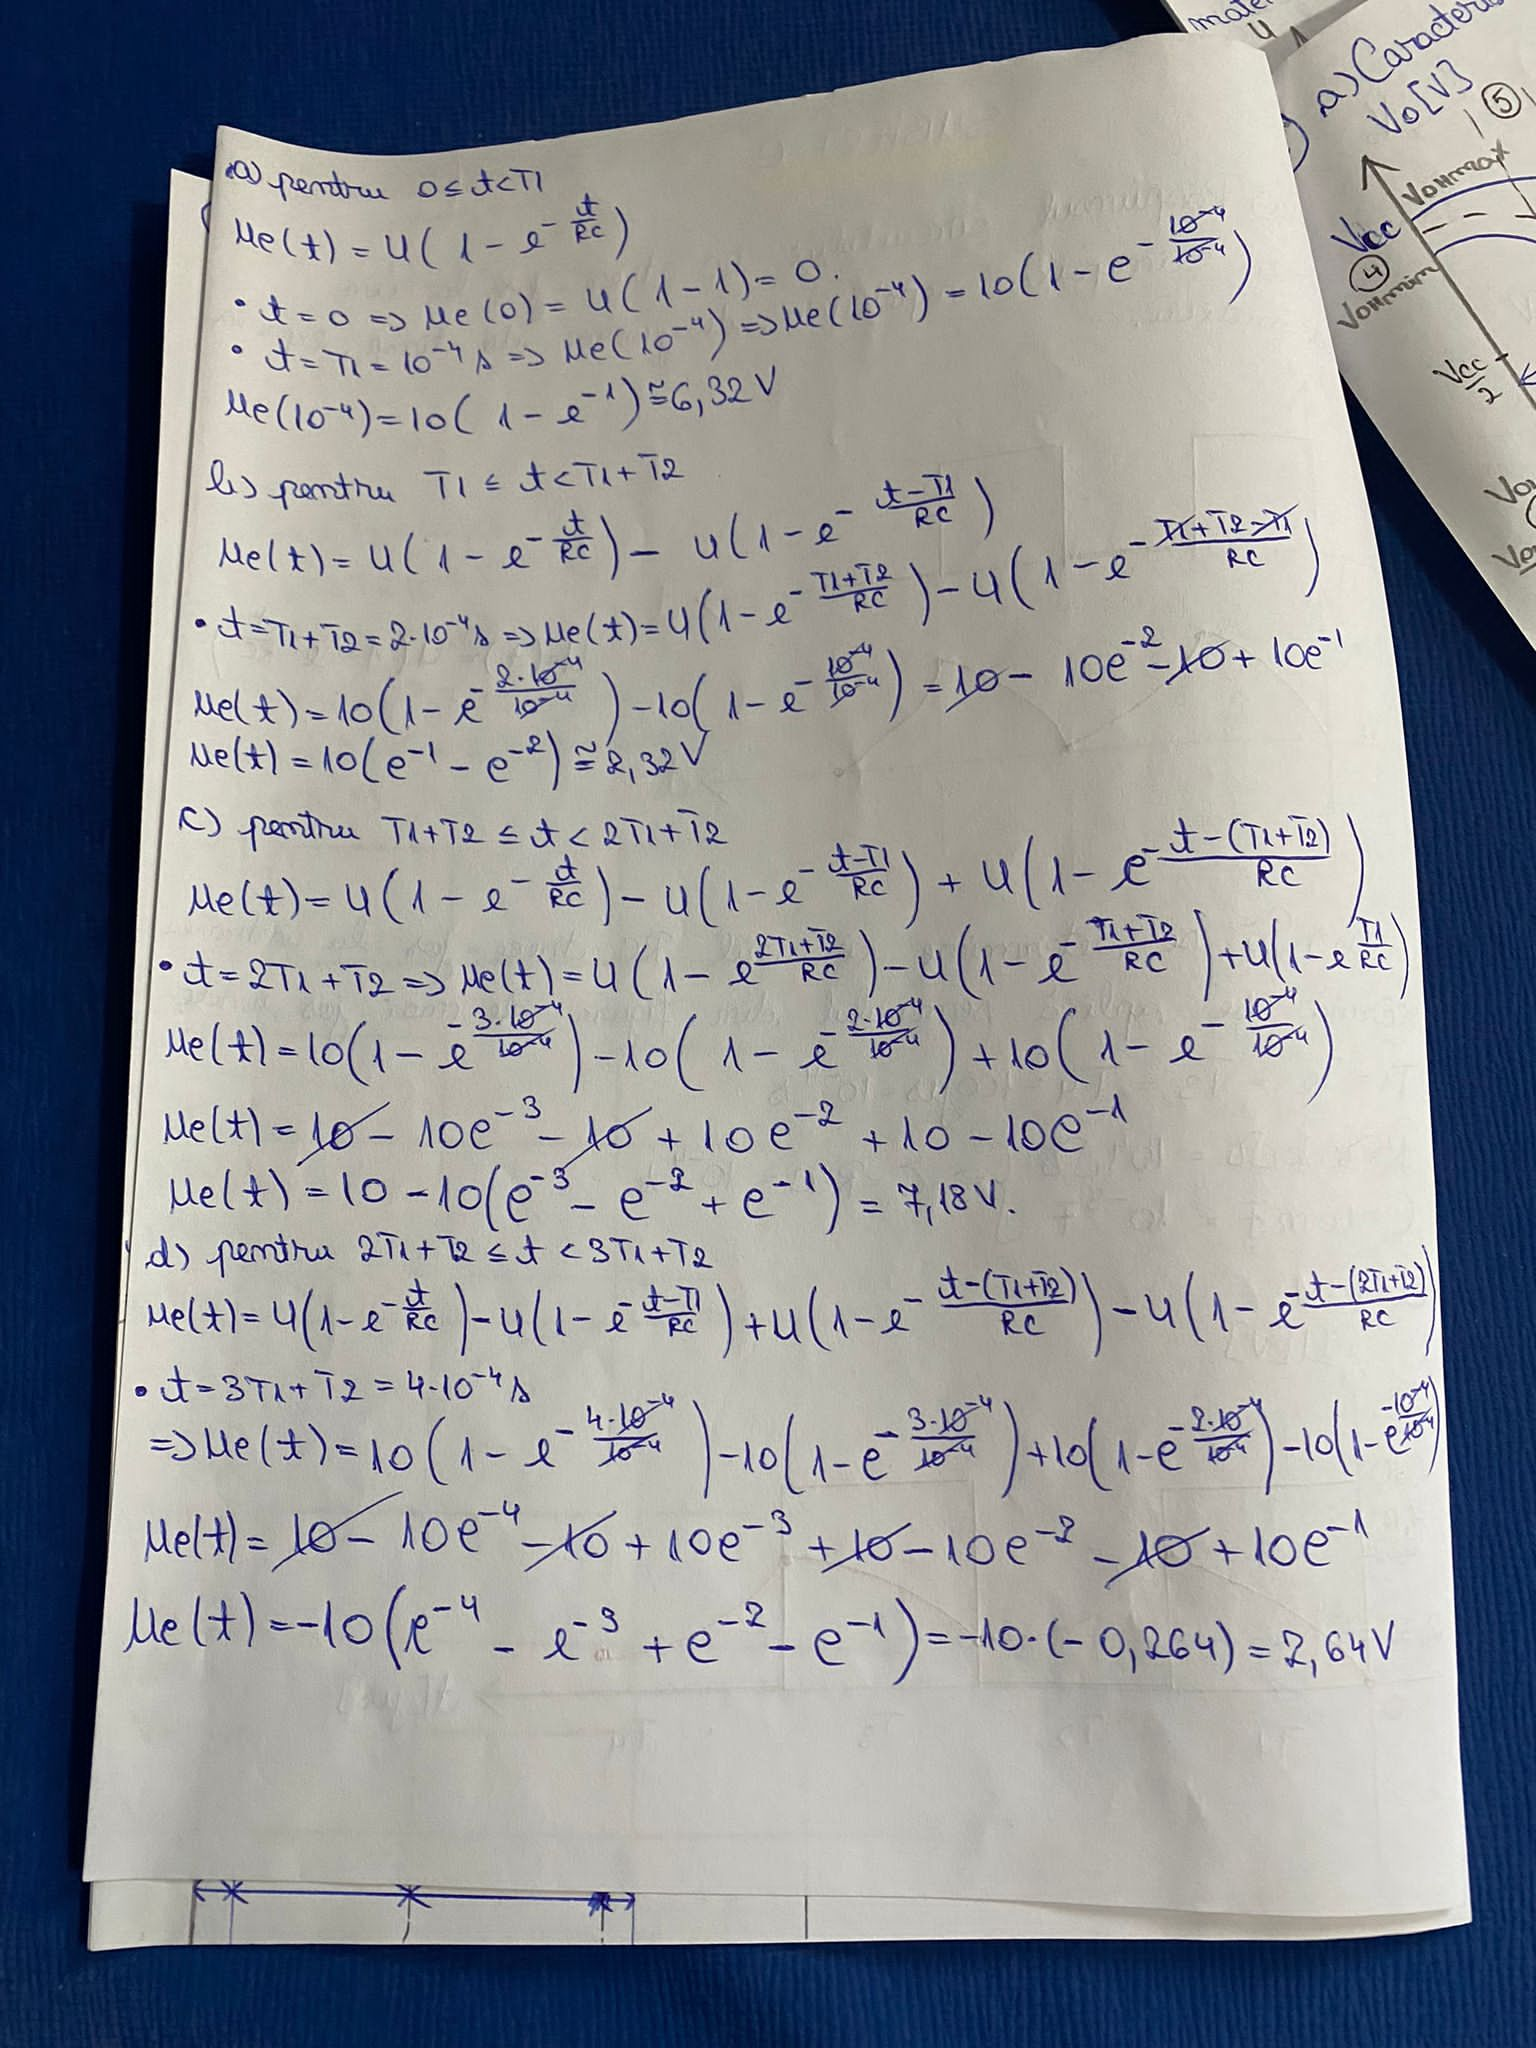 a) pentru 0 ≤ t < T1
ue(t) = U(1 - e^{-t/RC})
• t = 0 => ue(0) = U(1 - 1) = 0.
• t = T1 = 10^{-4} s => ue(10^{-4}) => ue(10^{-4}) = 10(1 - e^{-10^{-4}/10^{-4}})
ue(10^{-4}) = 10(1 - e^{-1}) ≅ 6,32 V
b) pentru T1 ≤ t < T1+T2
ue(t) = U(1 - e^{-t/RC}) - U(1 - e^{-(t-T1)/RC})
• t = T1+T2 = 2·10^{-4} s => ue(t) = U(1 - e^{-(T1+T2)/RC}) - U(1 - e^{-(T1+T2-T1)/RC})
ue(t) = 10(1 - e^{-2·10^{-4}/10^{-4}}) - 10(1 - e^{-10^{-4}/10^{-4}}) = 10 - 10e^{-2} - 10 + 10e^{-1}
ue(t) = 10(e^{-1} - e^{-2}) ≅ 2,32 V
c) pentru T1+T2 ≤ t < 2T1+T2
ue(t) = U(1 - e^{-t/RC}) - U(1 - e^{-(t-T1)/RC}) + U(1 - e^{-(t-(T1+T2))/RC})
• t = 2T1+T2 => ue(t) = U(1 - e^{(2T1+T2)/RC}) - U(1 - e^{-(T1+T2)/RC}) + U(1 - e^{T1/RC})
ue(t) = 10(1 - e^{-3·10^{-4}/10^{-4}}) - 10(1 - e^{-2·10^{-4}/10^{-4}}) + 10(1 - e^{-10^{-4}/10^{-4}})
ue(t) = 10 - 10e^{-3} - 10 + 10e^{-2} + 10 - 10e^{-1}
ue(t) = 10 - 10(e^{-3} - e^{-2} + e^{-1}) = 7,18 V.
d) pentru 2T1+T2 ≤ t < 3T1+T2
ue(t) = U(1 - e^{-t/RC}) - U(1 - e^{-(t-T1)/RC}) + U(1 - e^{-(t-(T1+T2))/RC}) - U(1 - e^{-(t-(2T1+T2))/RC})
• t = 3T1+T2 = 4·10^{-4} s
=> ue(t) = 10(1 - e^{-4·10^{-4}/10^{-4}}) - 10(1 - e^{-3·10^{-4}/10^{-4}}) + 10(1 - e^{-2·10^{-4}/10^{-4}}) - 10(1 - e^{-10^{-4}/10^{-4}})
ue(t) = 10 - 10e^{-4} - 10 + 10e^{-3} + 10 - 10e^{-2} - 10 + 10e^{-1}
ue(t) = -10(e^{-4} - e^{-3} + e^{-2} - e^{-1}) = -10·(-0,264) = 2,64 V
a)
Vo[V]
5
VOHmax
Vcc
4
VOHmin
Vcc/2